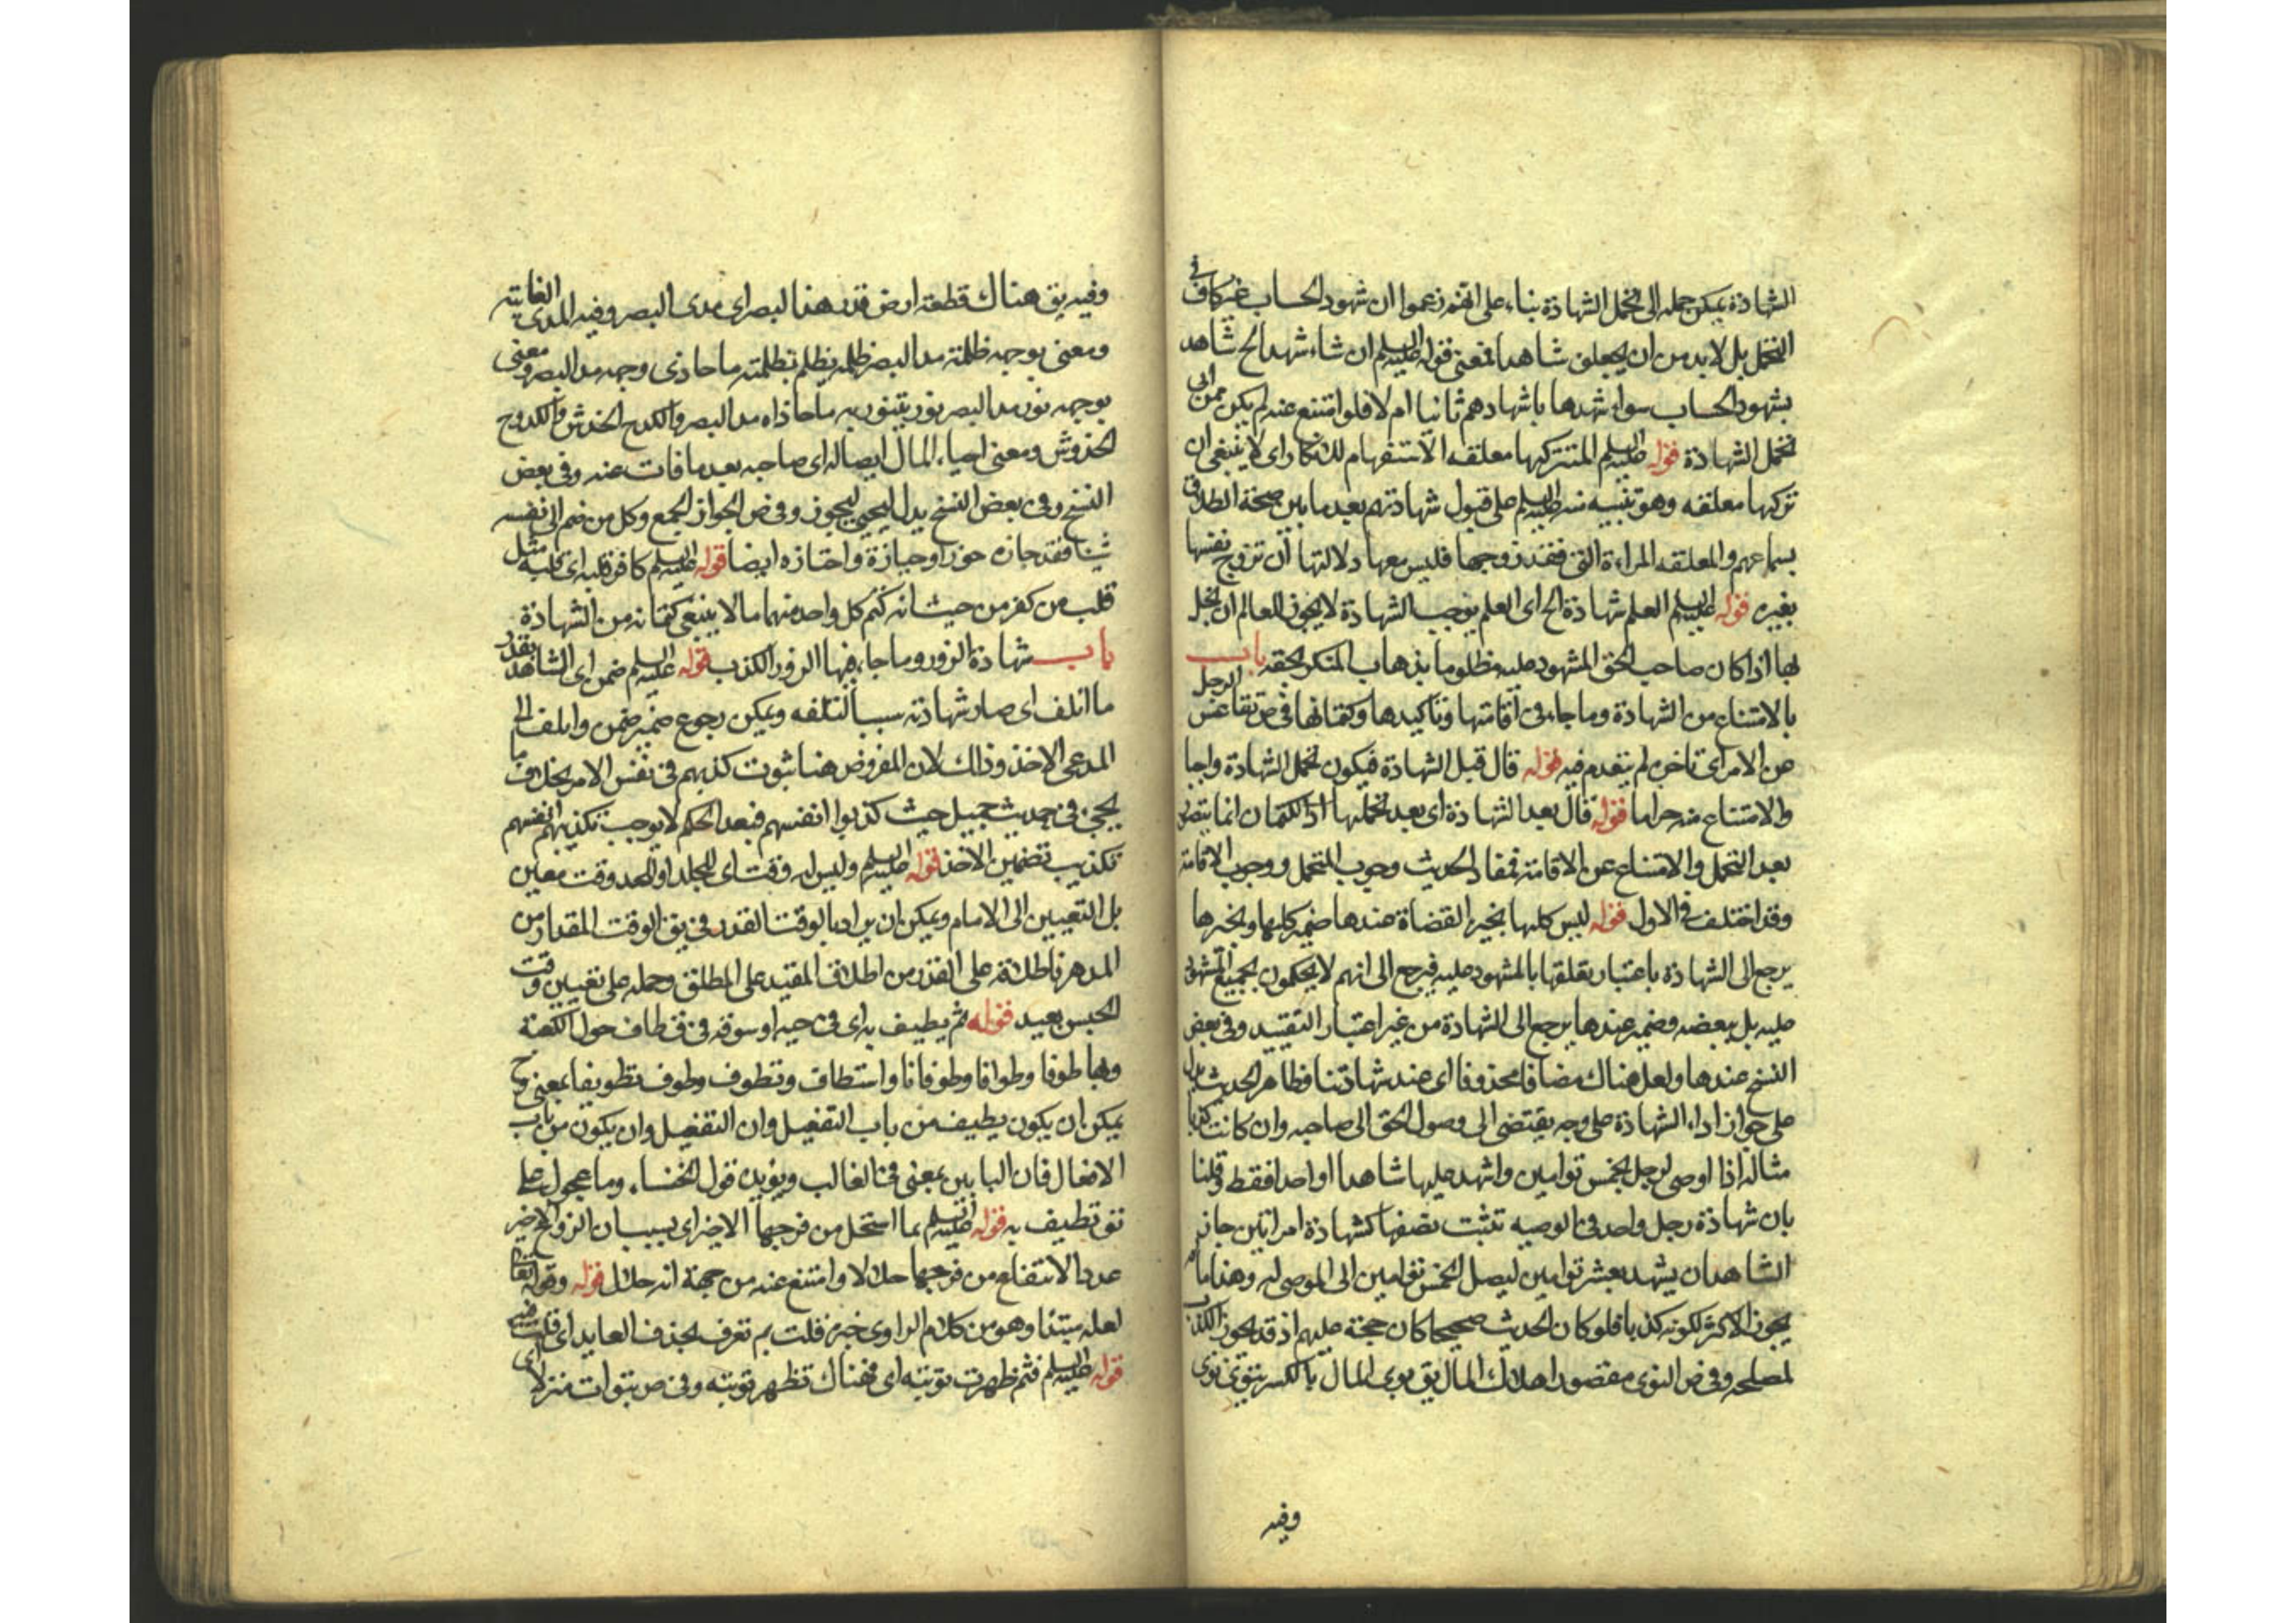 الشهادة يمكن حمله الى تحمل الشهادة بناء على انهم زعموا ان شهود الحساب غير كاف في
التحمل بل لا بد من ان يجعلوه شاهدا فمعنى قوله عليه السلم ان شاء شهد الخ شاهد
بشهود الحساب سواء شهدها باشهادهم ثانيا ام لا فلو امتنع عنه لم يكن ممن ابى
تحمل الشهادة قوله عليه السلم المتتركها معلقه الاستفهام للانكار اى لا ينبغى ان
تتركها معلقه وهو تنبيه منه عليه السلم على قبول شهادتهم بعد ما بين صحة الطلاق
بسماعهم والمعلقه المراءة التى فقد زوجها فليس معها دلالتها ان تزوج نفسها
بغيره قوله عليه السلم العلم شهادة الخ اى العلم يوجب الشهادة لا يجوز للعالم ان يبخل
بها اذا كان صاحب الحق المشهود عليه مظلوما بذهاب المنكر بحقه باب
بالامتناع من الشهادة وما جاء فى اقامتها وتاكيدها وكتمانها فى ص تقاعس الرجل
عن الامر اى تاخر ولم يتقدم فيه قوله قال قبل الشهادة فيكون تحمل الشهادة واجبا
والامتناع منه حراما قوله قال بعد الشهادة اى بعد تحملها اذ الكتمان انما يتصور
بعد التحمل والامتناع عن الاقامة فمفاد الحديث وجوب التحمل ووجوب الاقامة
وقد اختلف فى الاول قوله ليس كلها يخير القضاة عندها ضمير كلها ويخيرها
يرجع الى الشهادة باعتبار تعلقها بالمشهود عليه فيرجع الى انهم لا يحكمون بجميع المشهود
عليه بل ببعضه وضمير عندها يرجع الى الشهادة من غير اعتبار التقييد وفى بعض
النسخ عندها ولعل هناك مضافا محذوفا اى عند شهادتنا فظاهر الحديث يدل
على جواز اداء الشهادة على وجه يقتضى الى وصول الحق الى صاحبه وان كانت كذبا
مثاله اذا اوصى لرجل بخمس توامين واشهد عليها شاهدا واحدا فقط وقلنا
بان شهادة رجل واحد فى الوصيه تثبت نصفها كشهادة امراتين جاز
الشاهدان يشهد بعشر توامين ليصل الخمس توامين الى الموصى له وهذا مما لم
يجوز الاكثر لكونه كذبا فلو كان الحديث صحيحا كان حجة عليهم اذ قد يجوز الكذب
لمصلحه وفى ص التوى مقصورا هلاك المال يق توى المال بالكسر يتوى توى
وفيه
وفيه يق هناك قطعة ارض قدر هذا البصر اى مدى البصر وفيه المدى الغاية
ومعنى بوجهه ظلمة مد البصر ظلمه يظلم بظلمته ما حاذى وجهه مد البصر ومعنى
بوجهه نور مد البصر نور يتنور به ما حاذاه مد البصر والكدح الخدش والكدوح
الخدوش ومعنى احياء المال ايصاله اى صاحبه بعد ما فات عنه وفى بعض
النسخ وفى بعض النسخ بدل ليحيى ليحوز وفى ص الحوز الجمع وكل من ضم الى نفسه
شيئا فقد حازه حوزا وحيازة واحتازه ايضا قوله عليه السلم كافر قلبه اى قلبه مثل
قلب من كفر من حيث انه كتم كل واحد منهما ما لا ينبغى كتمانه من الشهادة
باب شهادة الزور وما جاء فيها الزور الكذب قوله عليه السلم ضمن اى الشاهد بقدر
ما اتلف اى صار شهادته سببا لتلفه ويمكن رجوع ضمير ضمن واتلف الى
المدعى الاخذ وذلك لان المفروض هنا ثبوت كذبهم فى نفس الامر بخلاف ما
يجئ فى حديث جميل حيث كذبوا انفسهم فبعد الحكم لا يوجب تكذيبهم انفسهم
تكذيب تضمين الاخذ قوله عليه السلم وليس له وقت اى للجلد او للحد وقت معين
بل التعيين الى الامام ويمكن ان يراد بالوقت القدر فى يق الوقت المقدار من
الدهر فاطلاقه على القدر من اطلاق المقيد على المطلق وحمله على تعيين وقت
الحبس بعيد قوله ثم يطيف به اى فى حيه او سوقه فى ق طاف حول الكعبة
وبها طوفا وطوافا وطوفانا واستطاف وتطوف وطوف تطويفا بمعنى وح
يمكن ان يكون يطيف من باب التفعيل وان التفعيل وان يكون من باب
الافعال فان البابين بمعنى فى الغالب ويؤيده قول الخنساء وما عجول على
بو تطيف به قوله عليه السلم بما استحل من فرجها الاخير اى بسبب ان الزوج الاخير
عد بالانتفاع من فرجها حلالا وامتنع عنه من جهة انه حلال قوله وقوله
لعله مبتدا وهو من كلام الراوى خبره قلت بم تعرف بحذف العايد اى قلت فيه
قوله عليه السلم فثم ظهرت توبته اى فهناك تظهر توبته وفى ص بتوات منزلا اى